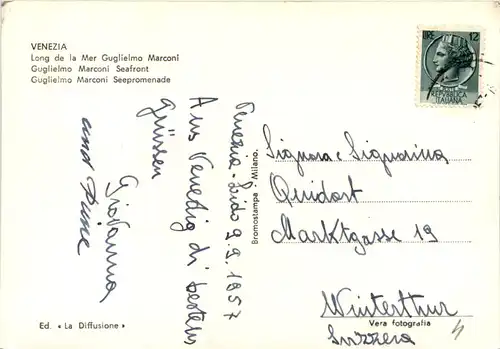 VENEZIA
Long de la Mer Guglielmo Marconi
Guglielmo Marconi Seafront
Guglielmo Marconi Seepromenade
LIRE 12
REPVBBLICA
ITALIANA
Venezia-Lido 9.9.1957
Aus Venedig di besten
Grüssen
Giovanna
and
Bromostampa - Milano.
Signora e Signorina
Quidort
Marktgasse 19
Winterthur
Svizzera
Vera fotografia
Ed. « La Diffusione »